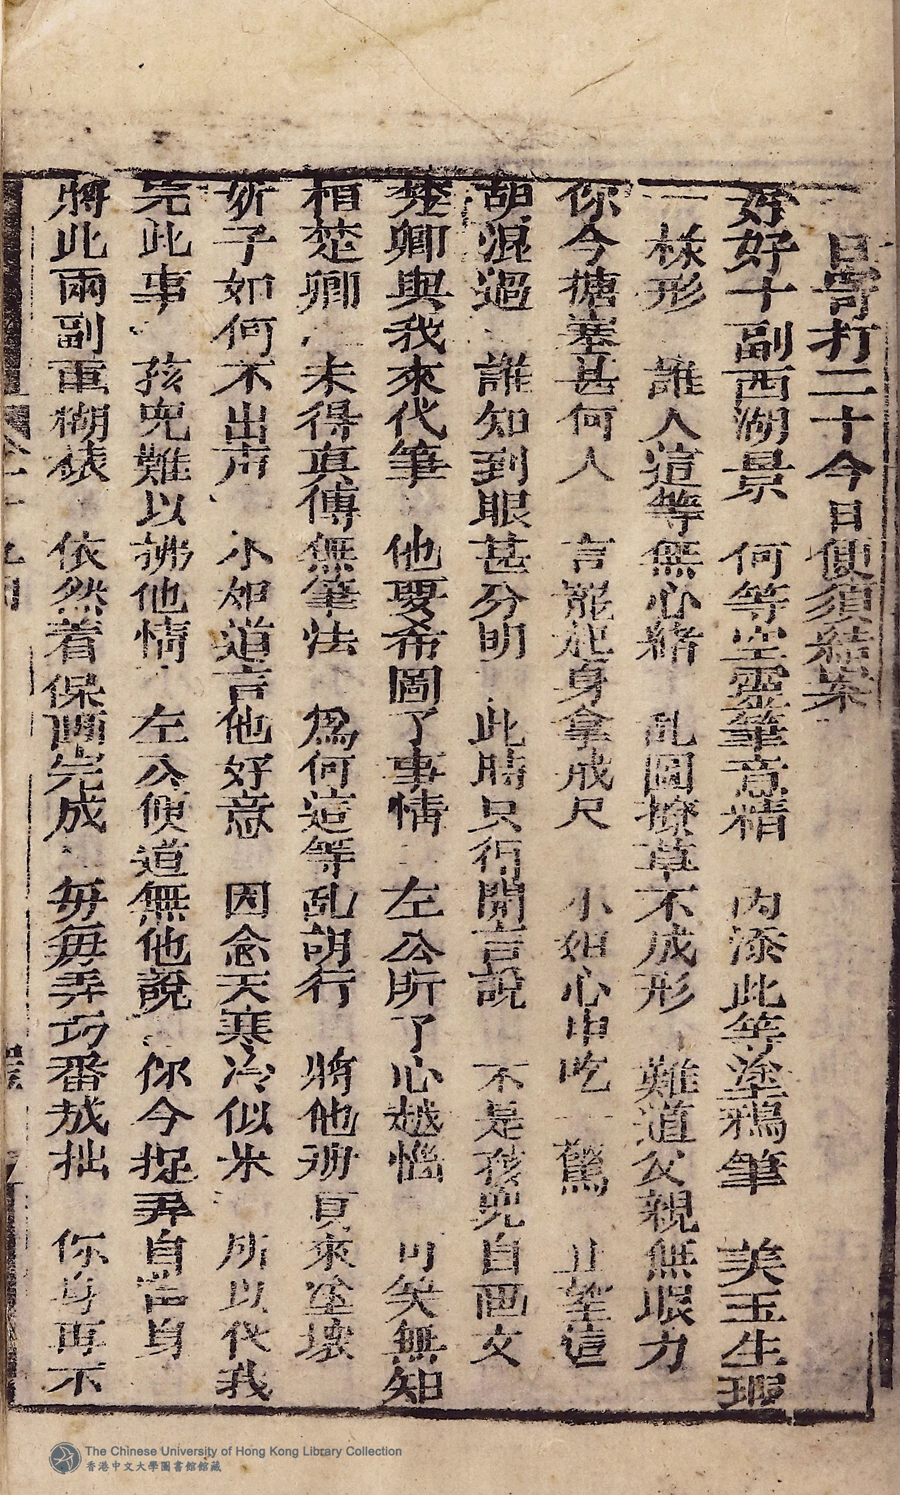 日寄打二十今日便須結案
好好十副西湖景 何等空靈筆意精 內添此等塗鴉筆 美玉生瑕
一樣形 誰人這等無心緒 乱圖撩草不成形 難道父親無眼力
你今搪塞甚何人 言罷起身拿戒尺 小姐心中吃一驚 止望這
胡混過 誰知到眼甚分明 此時只得開言說 不是孩兒自画文
楚卿與我來代筆 他要希圖了事情 左公听了心越惱 可笑無知
相楚卿 未得真傳無筆法 為何這等乱胡行 將他册頁來塗壞
妳子如何不出声 小姐道言他好意 因念天寒冷似氷 所以代我
完此事 孩兒難以拂他情 左公便道無他說 你今捉弄自己身
將此兩副重糊裱 依然着保画完成 毋毋弄巧番成拙 你身再不
The Chinese University of Hong Kong Library Collection
香港中文大學圖書館館藏